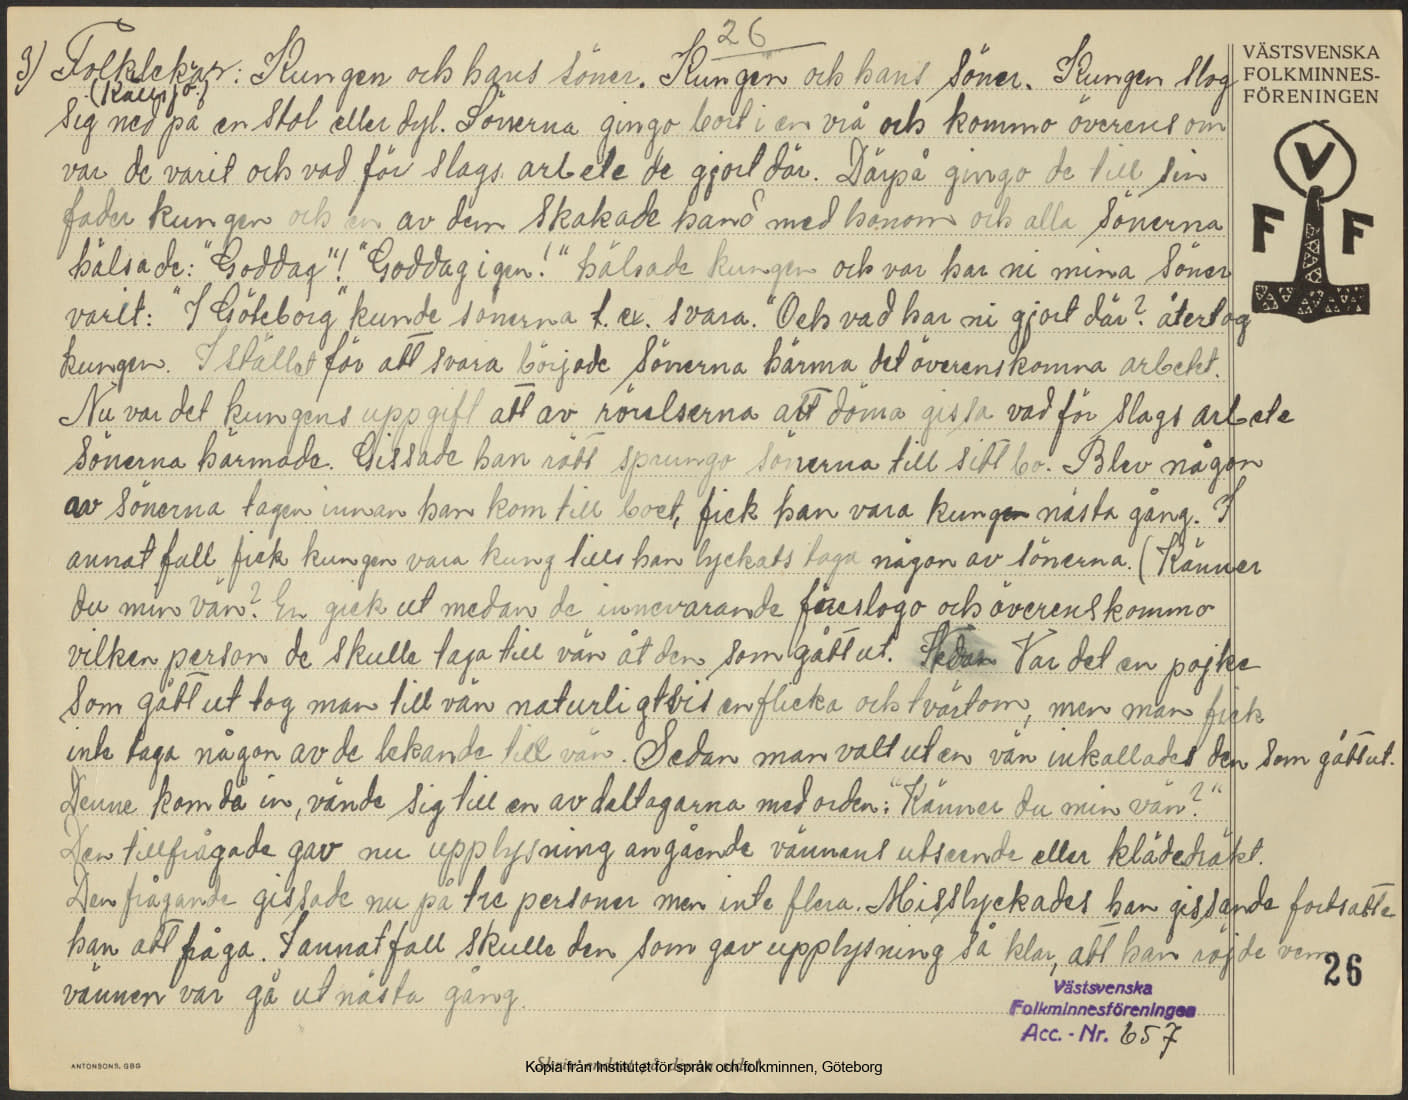 26
VÄSTSVENSKA
FOLKMINNES-
FÖRENINGEN
3) Folklekar: Kungen och hans söner. Kungen och hans söner. Kungen slog
(Kållsjö)
sig ned på en stol eller dyl. Sönerna gingo bort i en vrå och kommo överens om
var de varit och vad för slags arbete de gjort där. Därpå gingo de till sin
fader kungen och en av dem skakade hand med honom och alla sönerna
hälsade: "Goddag"! "Goddag igen!" hälsade kungen och var har ni mina söner
varit: "I Göteborg" kunde sönerna t. ex. svara. "Och vad har ni gjort där? återtog
kungen. I stället för att svara började sönerna härma det överenskomna arbetet.
Nu var det kungens uppgift att av rörelserna att döma gissa vad för slags arbete
sönerna härmade. Gissade han rätt sprungo sönerna till sitt bo. Blev någon
av sönerna tagen innan han kom till boet, fick han vara kungen nästa gång. I
annat fall fick kungen vara kung tills han lyckats taga någon av sönerna. (Känner
du min vän? En gick ut medan de innevarande föreslogo och överenskommo
vilken person de skulle taga till vän åt den som gått ut. Sedan Var det en pojke
som gått ut tog man till vän naturligtvis en flicka och tvärtom, men man fick
inte taga någon av de lekande till vän. Sedan man valt ut en vän inkallades den som gått ut.
Denne kom då in, vände sig till en av deltagarna med orden: "Känner du min vän?"
Den tillfrågade gav nu upplysning angående vännens utseende eller klädedräkt.
Den frågande gissade nu på tre personer men inte flera. Misslyckades han gissande fortsatte
han att fråga. I annat fall skulle den som gav upplysning så klar, att han röjde vem
vännen var gå ut nästa gång.
26
Västsvenska
Folkminnesföreningen
Acc. - Nr. 657
ANTONSONS, GBG
Kopia från Institutet för språk och folkminnen, Göteborg